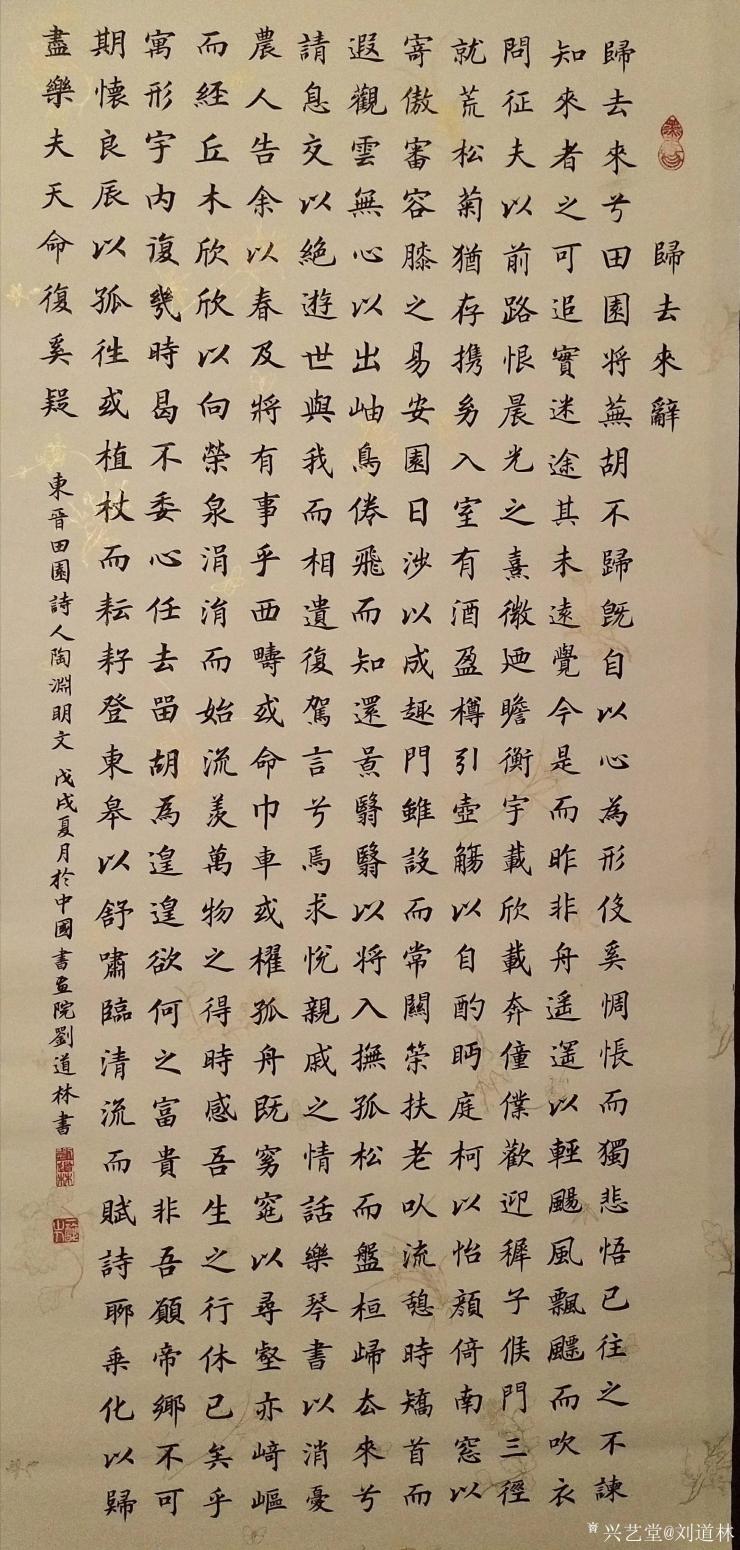 歸去來辭
歸去來兮田園将蕪胡不歸既自以心為形伇奚惆悵而獨悲悟已往之不諫
知來者之可追實迷途其未遠覺今是而昨非舟遥遥以輕颺風飄飄而吹衣
問征夫以前路恨晨光之熹微廼瞻衡宇載欣載奔僮僕歡迎穉子候門三徑
就荒松菊猶存携幼入室有酒盈樽引壺觴以自酌眄庭柯以怡顔倚南窓以
寄傲審容膝之易安園日涉以成趣門雖設而常關策扶老以流憩時矯首而
遐觀雲無心以出岫鳥倦飛而知還景翳翳以将入撫孤松而盤桓歸去來兮
請息交以絶遊世與我而相遺復駕言兮焉求悅親戚之情話樂琴書以消憂
農人告余以春及将有事乎西疇或命巾車或櫂孤舟既窈窕以尋壑亦崎嶇
而経丘木欣欣以向榮泉涓涓而始流羨萬物之得時感吾生之行休已矣乎
寓形宇内復幾時曷不委心任去畱胡為遑遑欲何之富貴非吾願帝鄉不可
期懷良辰以孤往或植杖而耘耔登東皋以舒嘯臨清流而賦詩聊乗化以歸
盡樂夫天命復奚疑
東晉田園詩人陶淵明文 戊戌夏月於中國書畫院劉道林書
兴艺堂@刘道林